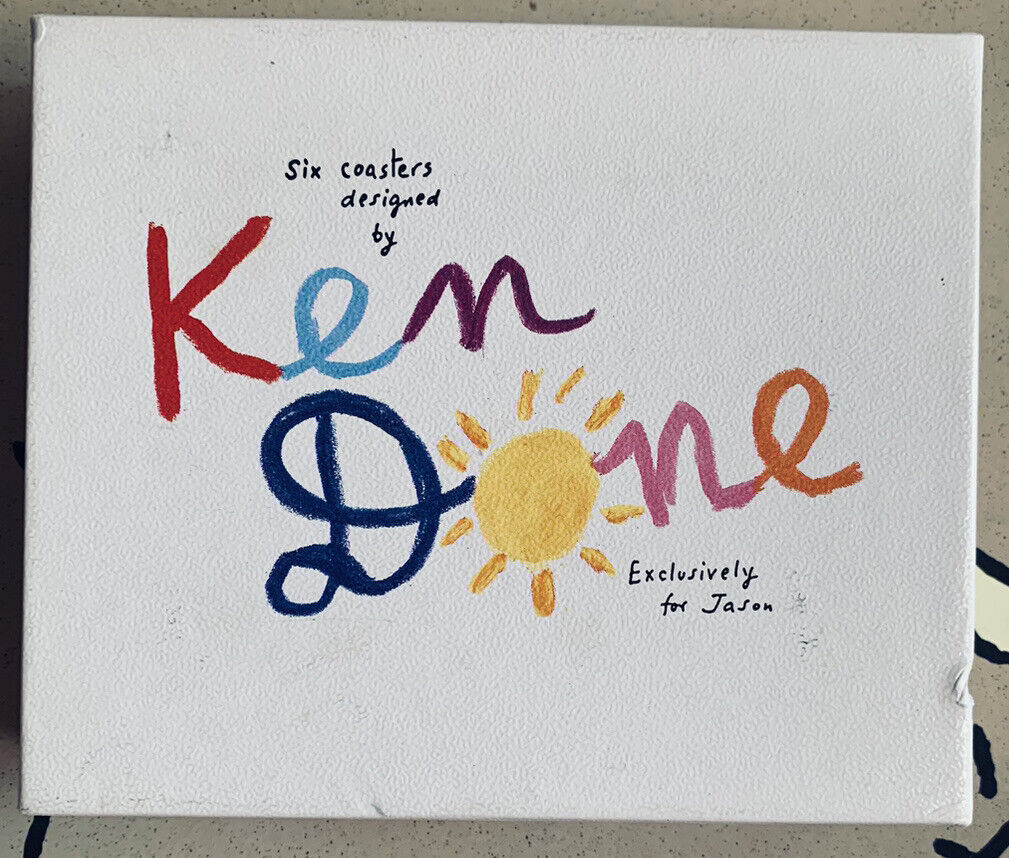 Six coasters
designed
by
Ken
Done
Exclusively
for Jason